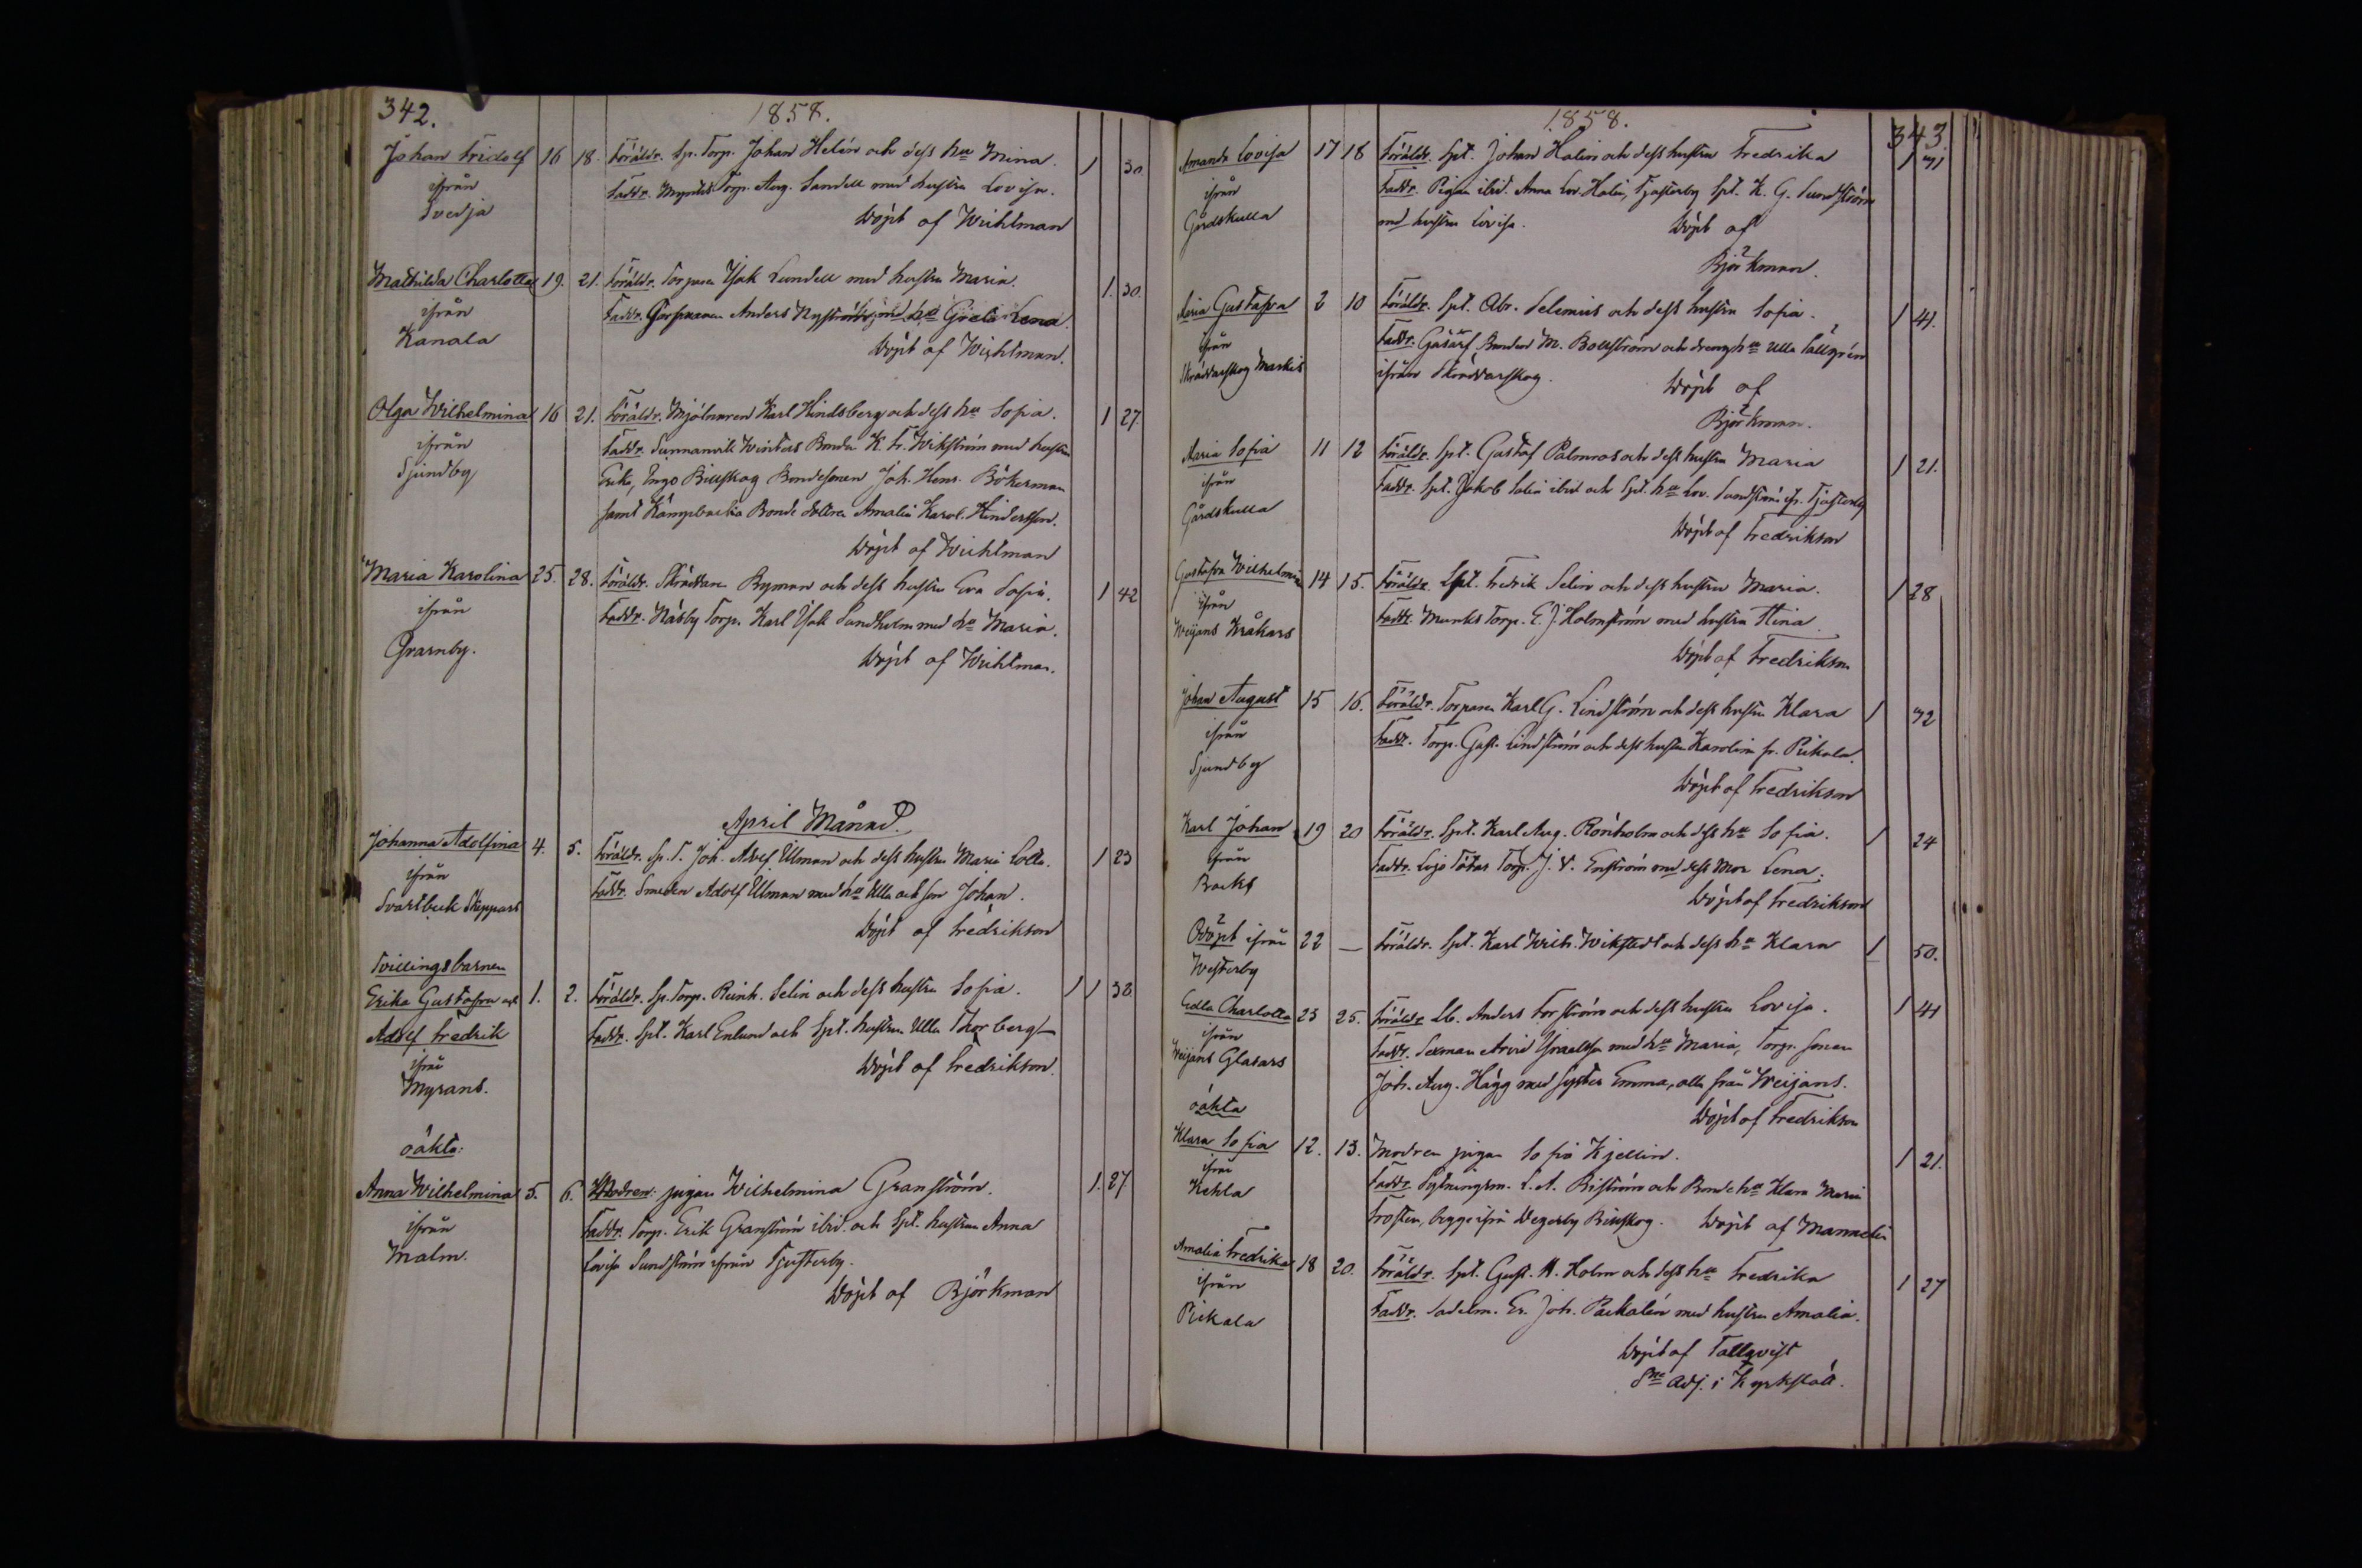 342.
1858.
Johan Fridolf 16 18. Föräldr. Sp. Torp. Johan Helén och dess hu Mina. 1 30.
ifrån Faddr. Torp. Aug. Sandell med hustru Lovisa.
Svedja Döpt af Wichtman
Mathilda Charlotta 19. 21. Föräldr. Torparen Isak Lundell med hustru Maria. 1. 30.
ifrån Faddr. Torparen Anders Nyström med hu Greta Lena.
Kanala Döpt af Wichtman.
Olga Wilhelmina 16 21. Föräldr. Mjölnaren Karl Hindsberg och dess hu Sofia. 1 27.
ifrån Faddr. Sunnanvik Bonden K. Fr. Wikström med hustru
Sjundby Ingo Billskog Bondesonen Joh. Henr. Bökerman
samt Kämpbacka Bonde dottren Amalia Karol. Hindersson.
Döpt af Wichtman
Maria Karolina 25. 28. Föräldr. Skräddaren Ryman och dess hustru Eva Sofia. 1 42
ifrån Faddr. Näsby Torp. Karl Isak Sundholm med hu Maria.
Grarnby. Döpt af Wichtman.
April Månad.
Johanna Adolfina 4. 5. Föräldr. Sp. T. Joh. Adolf Ellman och dess hustru Maria Lotta. 1 23
ifrån Faddr. Smeden Adolf Ellman med hu Ulla och son Johan.
Svartbeck Skeppars Döpt af Fredrikson
Tvillingsbarnen
Erika Gustafva och 1. 2. Föräldr. Sp. Torp. Reinh. Selin och dess hustru Sofia. 1 1 38
Adolf Fredrik Faddr. Spt. Karl Enlund och Spt. hustrun Ulla Thorberg
ifrån Döpt af Fredrikson.
Myrans.
oäkta:
Anna Wilhelmina 5. 6. Modren: pigan Wilhelmina Granström. 1. 27
ifrån Faddr. Torp. Erik Granström ibid. och Spt. hustrun Anna
Malm. Lovisa Sundström ifrån Tjusterby.
Döpt af Björkman
1858.
343.
Amanda Lovisa 17 18 Föräldr. Spt. Johan Halin och dess hustru Fredrika 1 41
ifrån Faddr. Pigan ibid. Anna Lov. Halin, Tjusterby Spt. K. G. Sundström
Gårdskulla med hustru Lovisa. Döpt af
Björkman.
Maria Gustafva 2 10 Föräldr. Spt. Abr. Selenius och dess hustru Sofia. 1 41.
ifrån Faddr. Gåsarf Bonden M. Bollström och drengh hu Ulla Tallgrén
Skräddarskog Markis ifrån Skräddarskog. Döpt af
Björkman.
Maria Sofia 11 12 Föräldr. Spt. Gustaf Palmros och dess hustru Maria 1 21.
ifrån Faddr. Spt. Jakob Salin ibid och Spt. hu Lov. Sundström ifr. Tjusterby
Gårdskulla Döpt af Fredrikson
Gustafva Wilhelmina 14 15. Föräldr. Spt. Fredrik Selin och dess hustru Maria. 1 28
ifrån Faddr. Munks Torp. E. J. Holmström med hustru Stina
Weijans Kråkars Döpt af Fredrikson
Johan August 15 16. Föräldr. Torparen Karl G. Lindström och dess hustru Klara 1 42
ifrån Faddr. Torp. Gust. Lindström och dess hustru Karolina fr. Pikala.
Sjundby Döpt af Fredrikson
Karl Johan 19 20 Föräldr. Spt. Karl Aug. Rönholm och dess hu Sofia. 1 24
ifrån Faddr. Torp. J. V. Enström med dess Mor Lena.
Backs Döpt af Fredrikson
Odöpt ifrån 22 — Föräldr. Spt. Karl Wilh. Wikstedt och dess hu Klara 1 50.
Westerby
Edla Charlotta 23 25. Föräldr. Anders Forström och dess hustru Lovisa. 1 41
ifrån Faddr. Sexman Arvid Israelsson med hu Maria, Torp. sonen
Weijans Glasars Joh. Aug. Hägg med syster Emma, alla från Weijans.
Döpt af Fredrikson
oäkta
Klara Sofia 12. 13. Modren pigan Sofia Kjellin. 1 21.
ifrån Faddr. Sytningsm. L. A. Biström och Bonde hu Klara Maria
Kehla begge ifrån Degerby Billskog. Döpt af Mannelin
Amalia Fredrika 18 20. Föräldr. Spt. Gust. A. Holm och dess hu Fredrika 1 27
ifrån Faddr. Sadelm. Er. Joh. Packalén med hustru Amalia.
Pikala Döpt af Tallqvist
Adj. i Kyrkslätt.